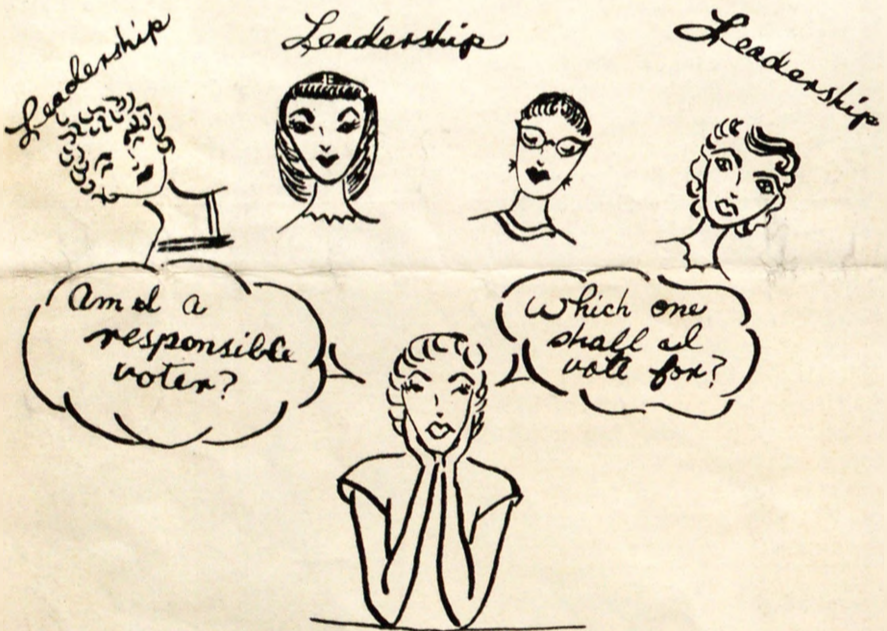 Leadership
Leadership
Leadership
Am I a
responsible
voter?
Which one
shall I
vote for?